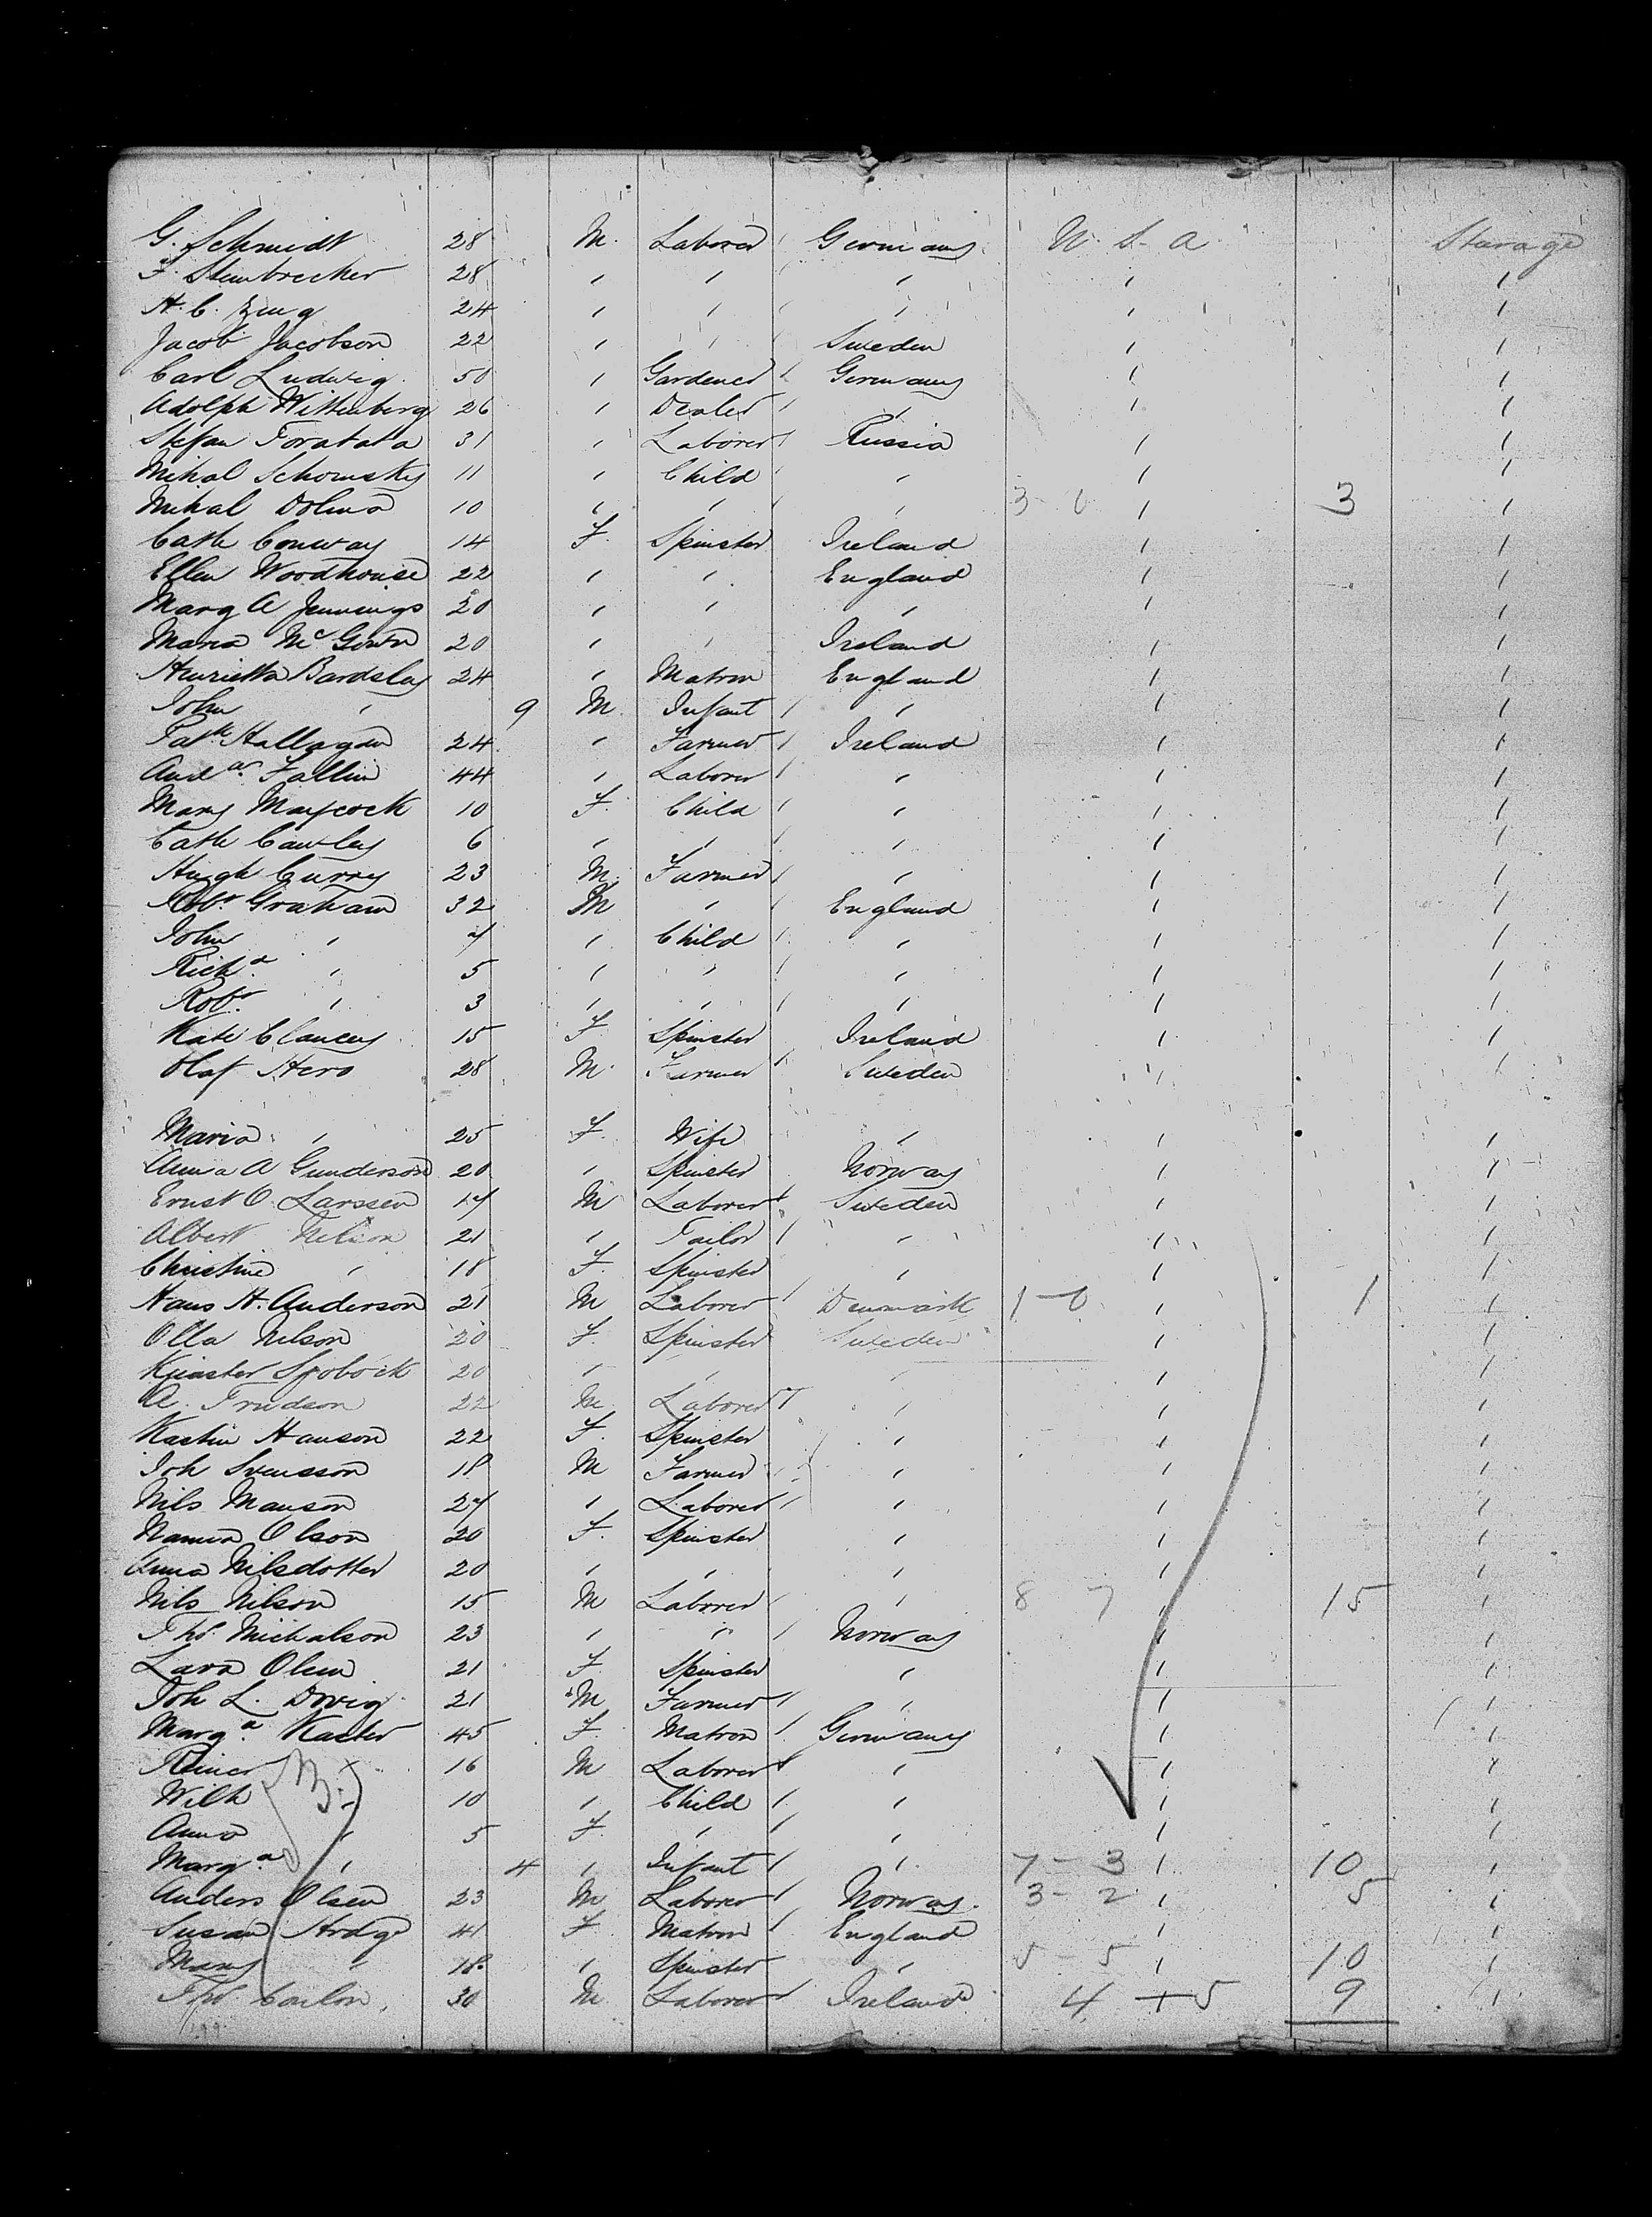 G. Schmidt 28 M. Laborer Germany U. S. A Sturage
F. Steinbrecher 28 " " " " "
H. C. Zeug 24 " " " " "
Jacob Jacobson 22 " " Sweden " "
Carl Ludwig 50 " Gardener Germany " "
Adolph Wittenberg 26 " Dealer " " "
Stefan Toratata 31 " Laborer Russia " "
Mihal Schomsky 11 " Child " " "
Mihal Dolma 10 " " " 3-0 " 3 "
Cath Conway 14 F. Spinster Ireland " "
Ellen Woodhouse 22 " " England " "
Marg A Jennings 20 " " " " "
Maria McGown 20 " " Ireland " "
Henrietta Bardsley 24 " Matron England " "
John " 9 M. Infant " " "
Patk Hallagan 24 " Farmer Ireland " "
Andw Fallin 44 " Laborer " " "
Mary Maycock 10 F. Child " " "
Cath Cawley 6 " " " " "
Hugh Curry 23 M. Farmer " " "
Robt Graham 32 M " England " "
John " 7 " Child " " "
Richd " 5 " " " " "
Robt " 3 " " " " "
Kate Clancey 15 F. Spinster Ireland " "
Olaf Hero 28 M. Farmer Sweden " "
Maria " 25 F. Wife " " "
Anna A Gunderson 20 " Spinster Norway " "
Ernst O. Larssen 17 M Laborer Sweden " "
Albert Nelson 21 " Tailor " " "
Christine " 18 F. Spinster " " "
Hans H. Anderson 21 M Laborer Denmark 1-0 " 1 "
Olla Nelson 20 F. Spinster Sweden " "
Sjobock 20 " " " " "
A. Trudson 22 M Laborer " " "
Kastin Hanson 22 F. Spinster " " "
Joh Svensson 18 M Farmer " " "
Nils Manson 27 " Laborer " " "
Olson 20 F. Spinster " " "
Anna Nilsdotter 20 " " " " "
Nils Nilson 15 M Laborer " 8 7 " 15 "
Thos. Michalson 23 " " Norway " "
Lara Olsen 21 F. Spinster " " "
Joh L. Dovig 21 M Farmer " " "
Marga Kaster 45 F. Matron Germany " "
Reiner " 16 M Laborer " " "
Wilh " 10 " Child " " "
Anna " 5 F. " " " "
Marga " 4 " Infant " 7-3 " 10 "
Anders Olsen 23 M Laborer Norway. 3-2 " 5 "
Susan Hodge 41 F. Matron England " "
Mary " 18 " Spinster " 5-5 " 10 "
Thos Conlon 30 M Laborer Ireland 4+5 9 "